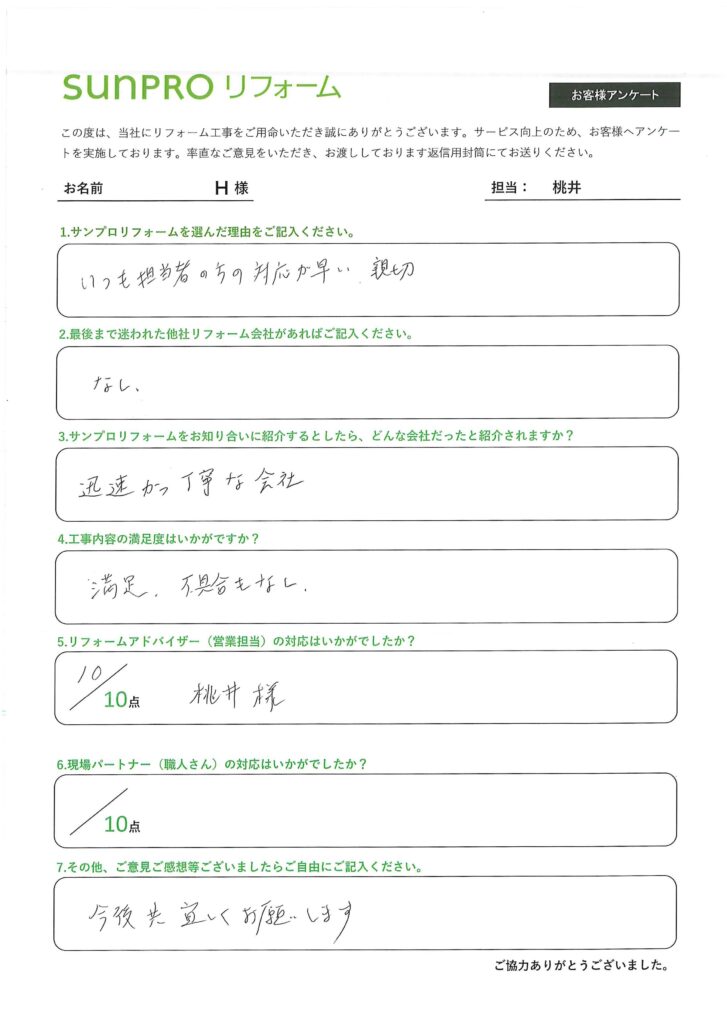 SUNPRO リフォーム
お客様アンケート
この度は、当社にリフォーム工事をご用命いただき誠にありがとうございます。サービス向上のため、お客様へアンケー
トを実施しております。率直なご意見をいただき、お渡ししております返信用封筒にてお送りください。
お名前 H 様 担当： 桃井
1.サンプロリフォームを選んだ理由をご記入ください。
いつも担当者のちの対応が早い 親切
2.最後まで迷われた他社リフォーム会社があればご記入ください。
なし、
3.サンプロリフォームをお知り合いに紹介するとしたら、どんな会社だったと紹介されますか？
迅速かつ丁寧な会社
4.工事内容の満足度はいかがですか？
満足、不具合もなし、
5.リフォームアドバイザー（営業担当）の対応はいかがでしたか？
10／10点 桃井様
6.現場パートナー（職人さん）の対応はいかがでしたか？
／10点
7.その他、ご意見ご感想等ございましたらご自由にご記入ください。
今後共宜しくお願いします
ご協力ありがとうございました。